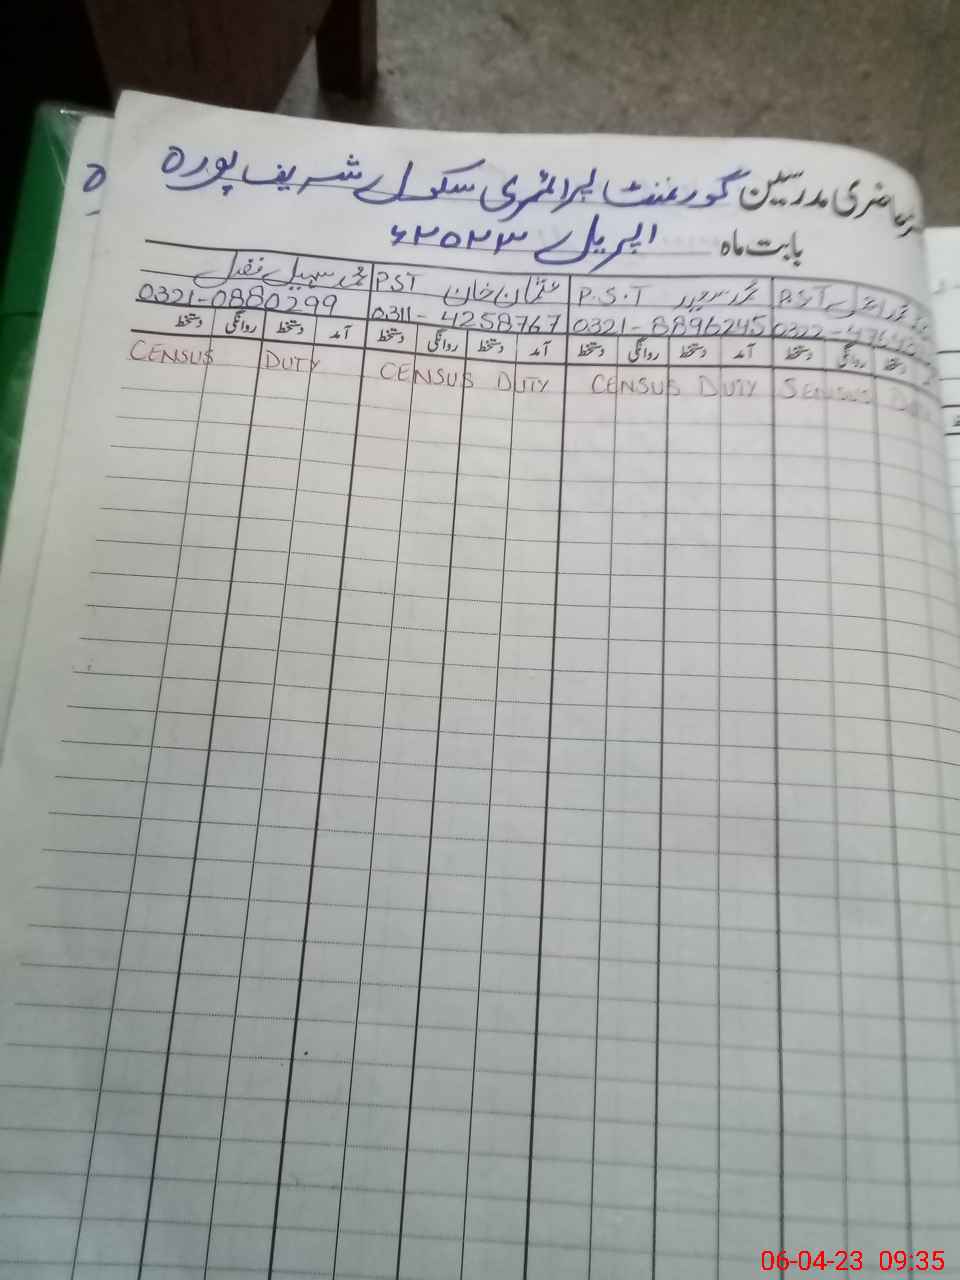 حاضری مدرسین گورنمنٹ پرائمری سکول شریف پورہ
بابت ماہ اپریل ۲۰۲۳ء
P.S.T محمد P.S.T عثمان خان P.S.T محمد سہیل فضل
0322-4764 0321-8896245 0311-4258767 0321-0880299
دستخط روانگی دستخط آمد دستخط روانگی دستخط آمد دستخط روانگی دستخط آمد دستخط روانگی دستخط
CENSUS DUTY CENSUS DUTY CENSUS DUTY SENSUS
06-04-23 09:35